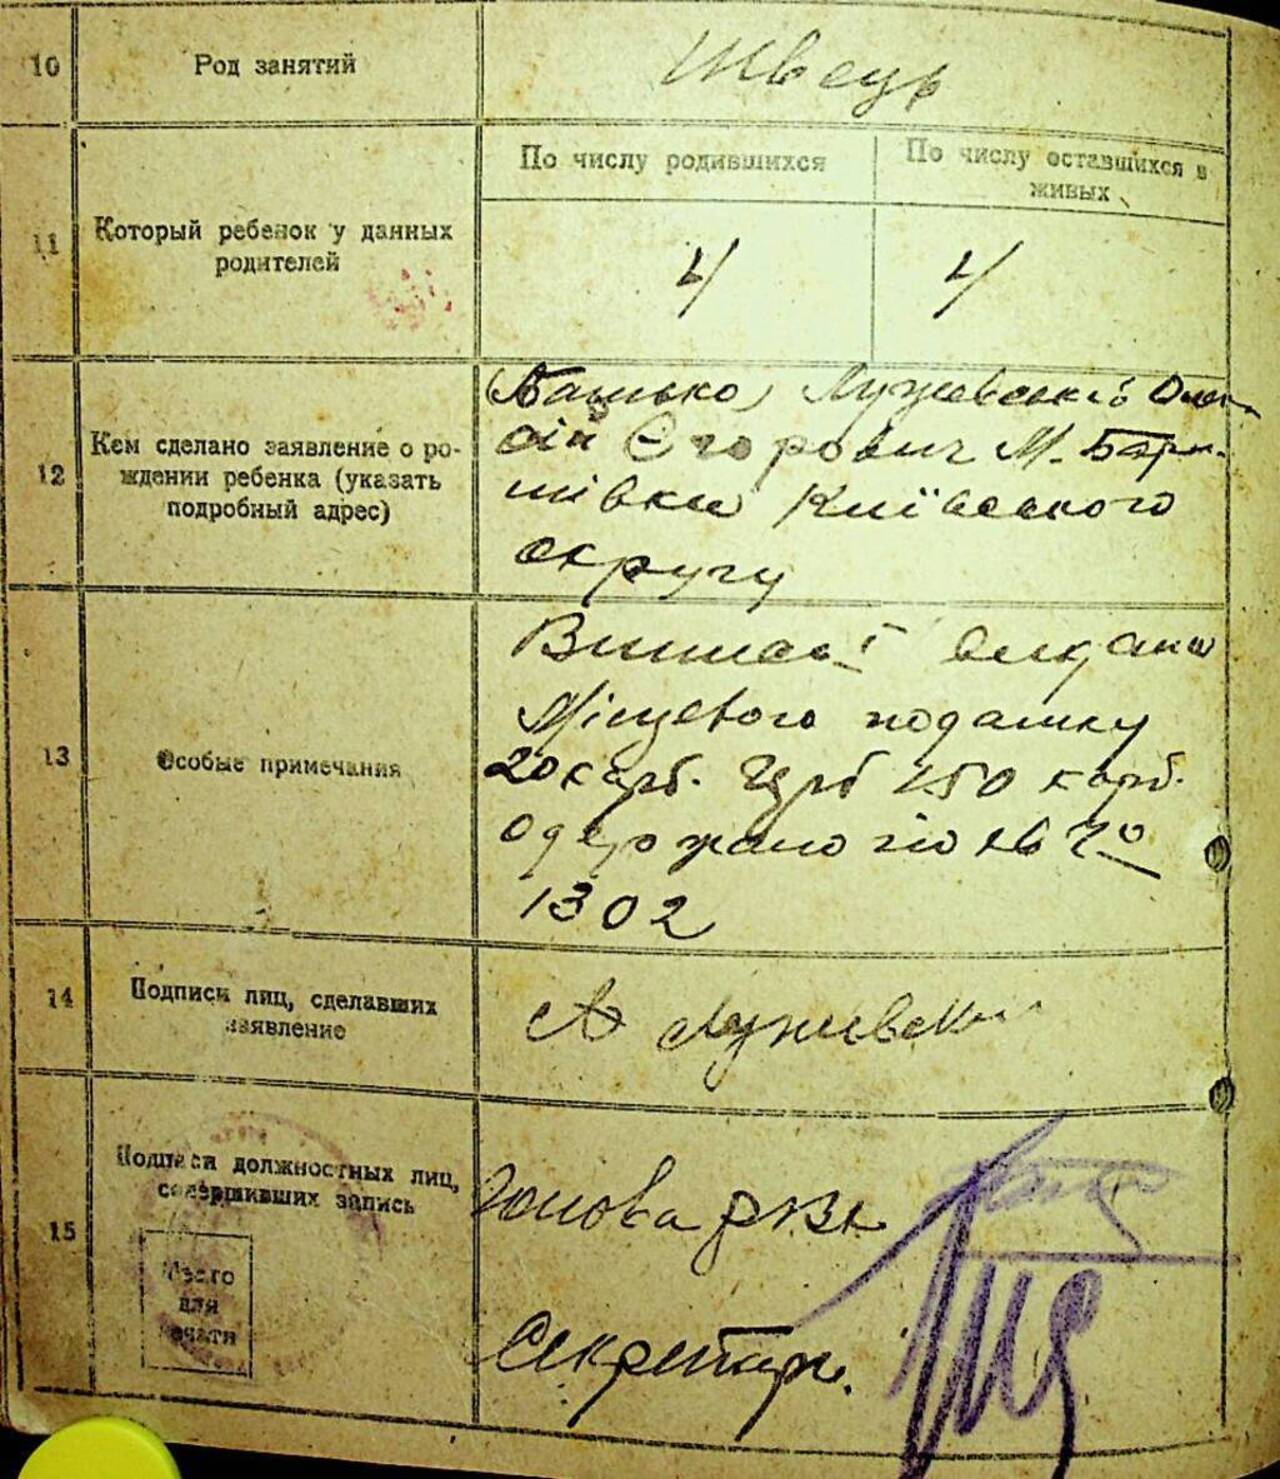 10
Род занятий
Швець
11
Который ребенок у данных
родителей
По числу родившихся
По числу оставшихся в
живых
4
4
12
Кем сделано заявление о ро-
ждении ребенка (указать
подробный адрес)
(Батько) Лужевський Олек
сій Єгорович М. Бари-
шівки Київського
округу
13
Особые примечания
видано
Місцевого податку
20 карб. 150 карб.
одержано по кв
1302
14
Подписи лиц, сделавших
заявление
А Лужевськ
15
Подписи должностных лиц,
совершивших запись
Место
для
печати
Голова РВК
Секретар.